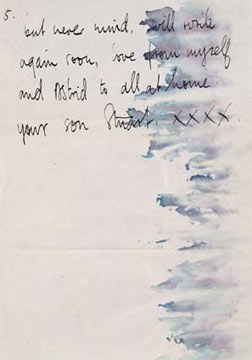 5.
but never mind, will write
again soon, love from myself
and Astrid to all at home
your son Stuart. XXXX